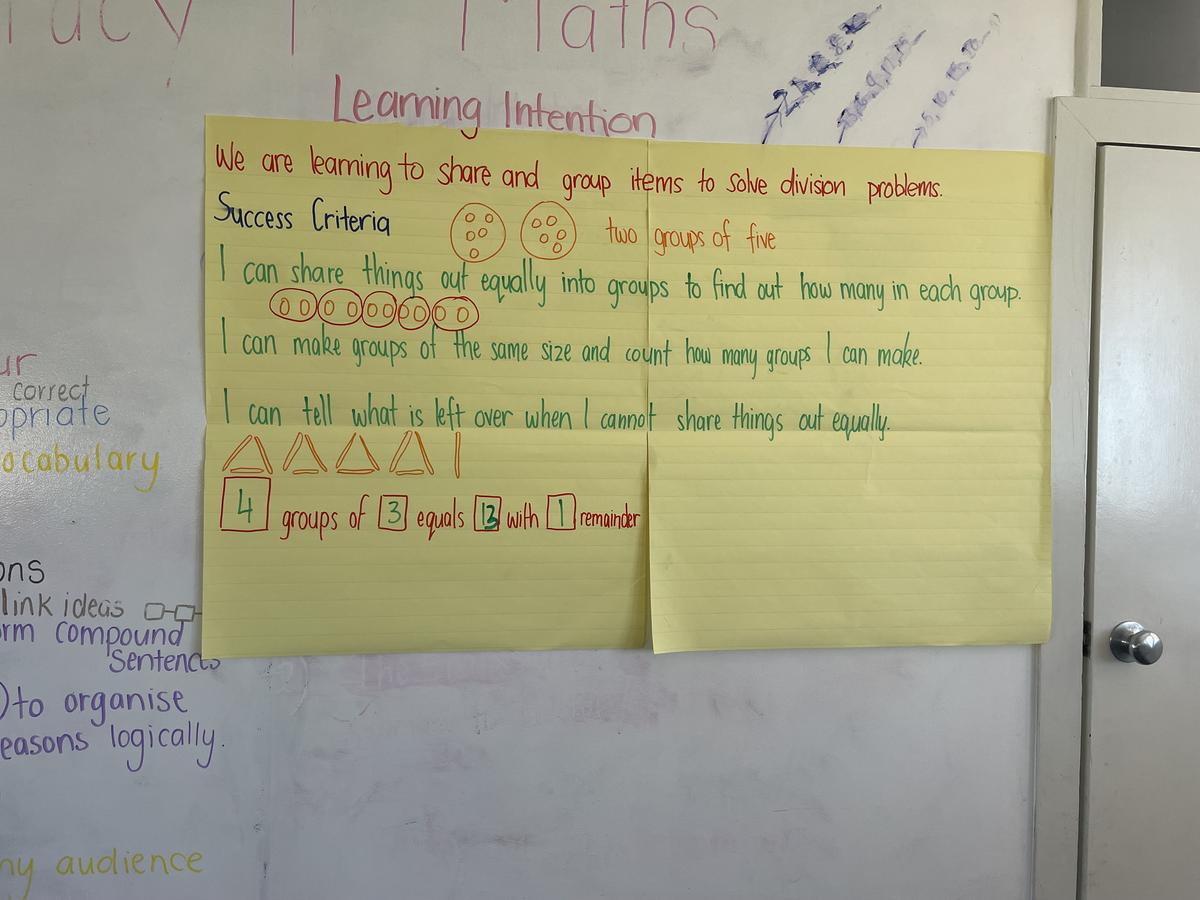 Maths
Learning Intention
We are learning to share and group items to solve division problems.
Success Criteria
two groups of five
I can share things out equally into groups to find out how many in each group.
I can make groups of the same size and count how many groups I can make.
I can tell what is left over when I cannot share things out equally.
4 groups of 3 equals 13 with 1 remainder
correct
vocabulary
link ideas
compound
Sentences
to organise
logically.
audience